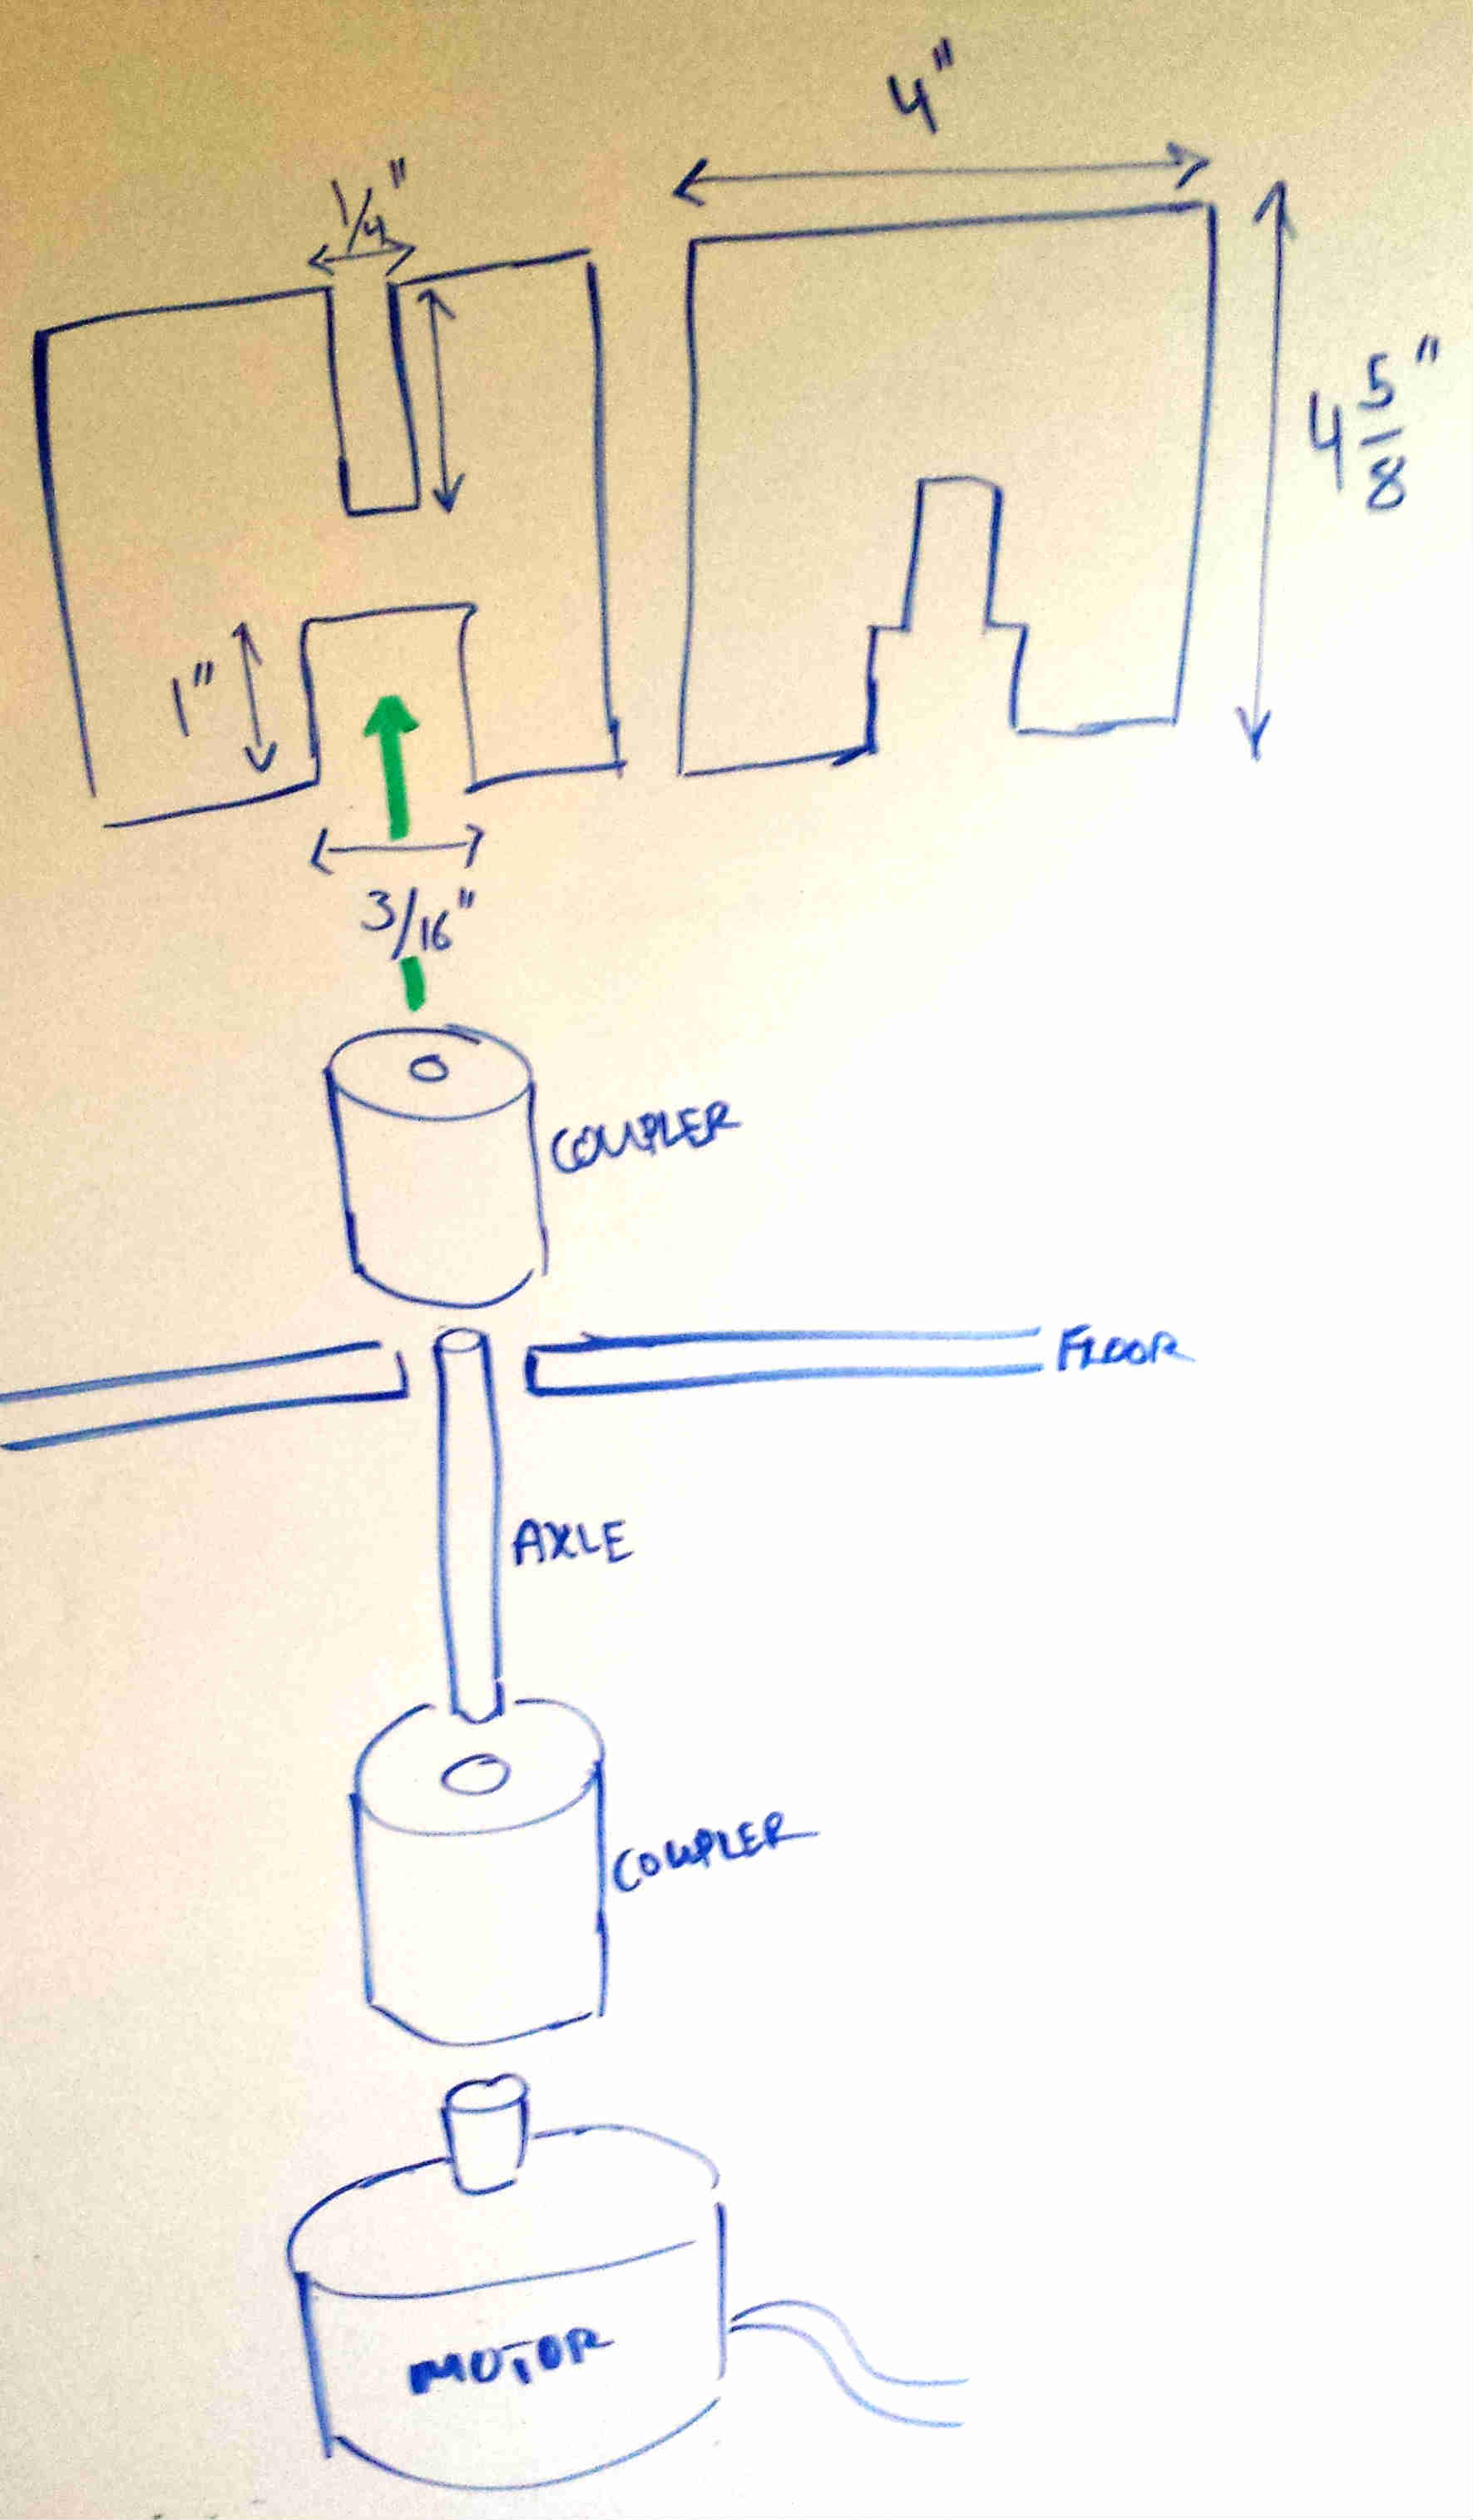 4"
1/4"
4 5/8"
1"
3/16"
COUPLER
FLOOR
AXLE
COUPLER
MOTOR